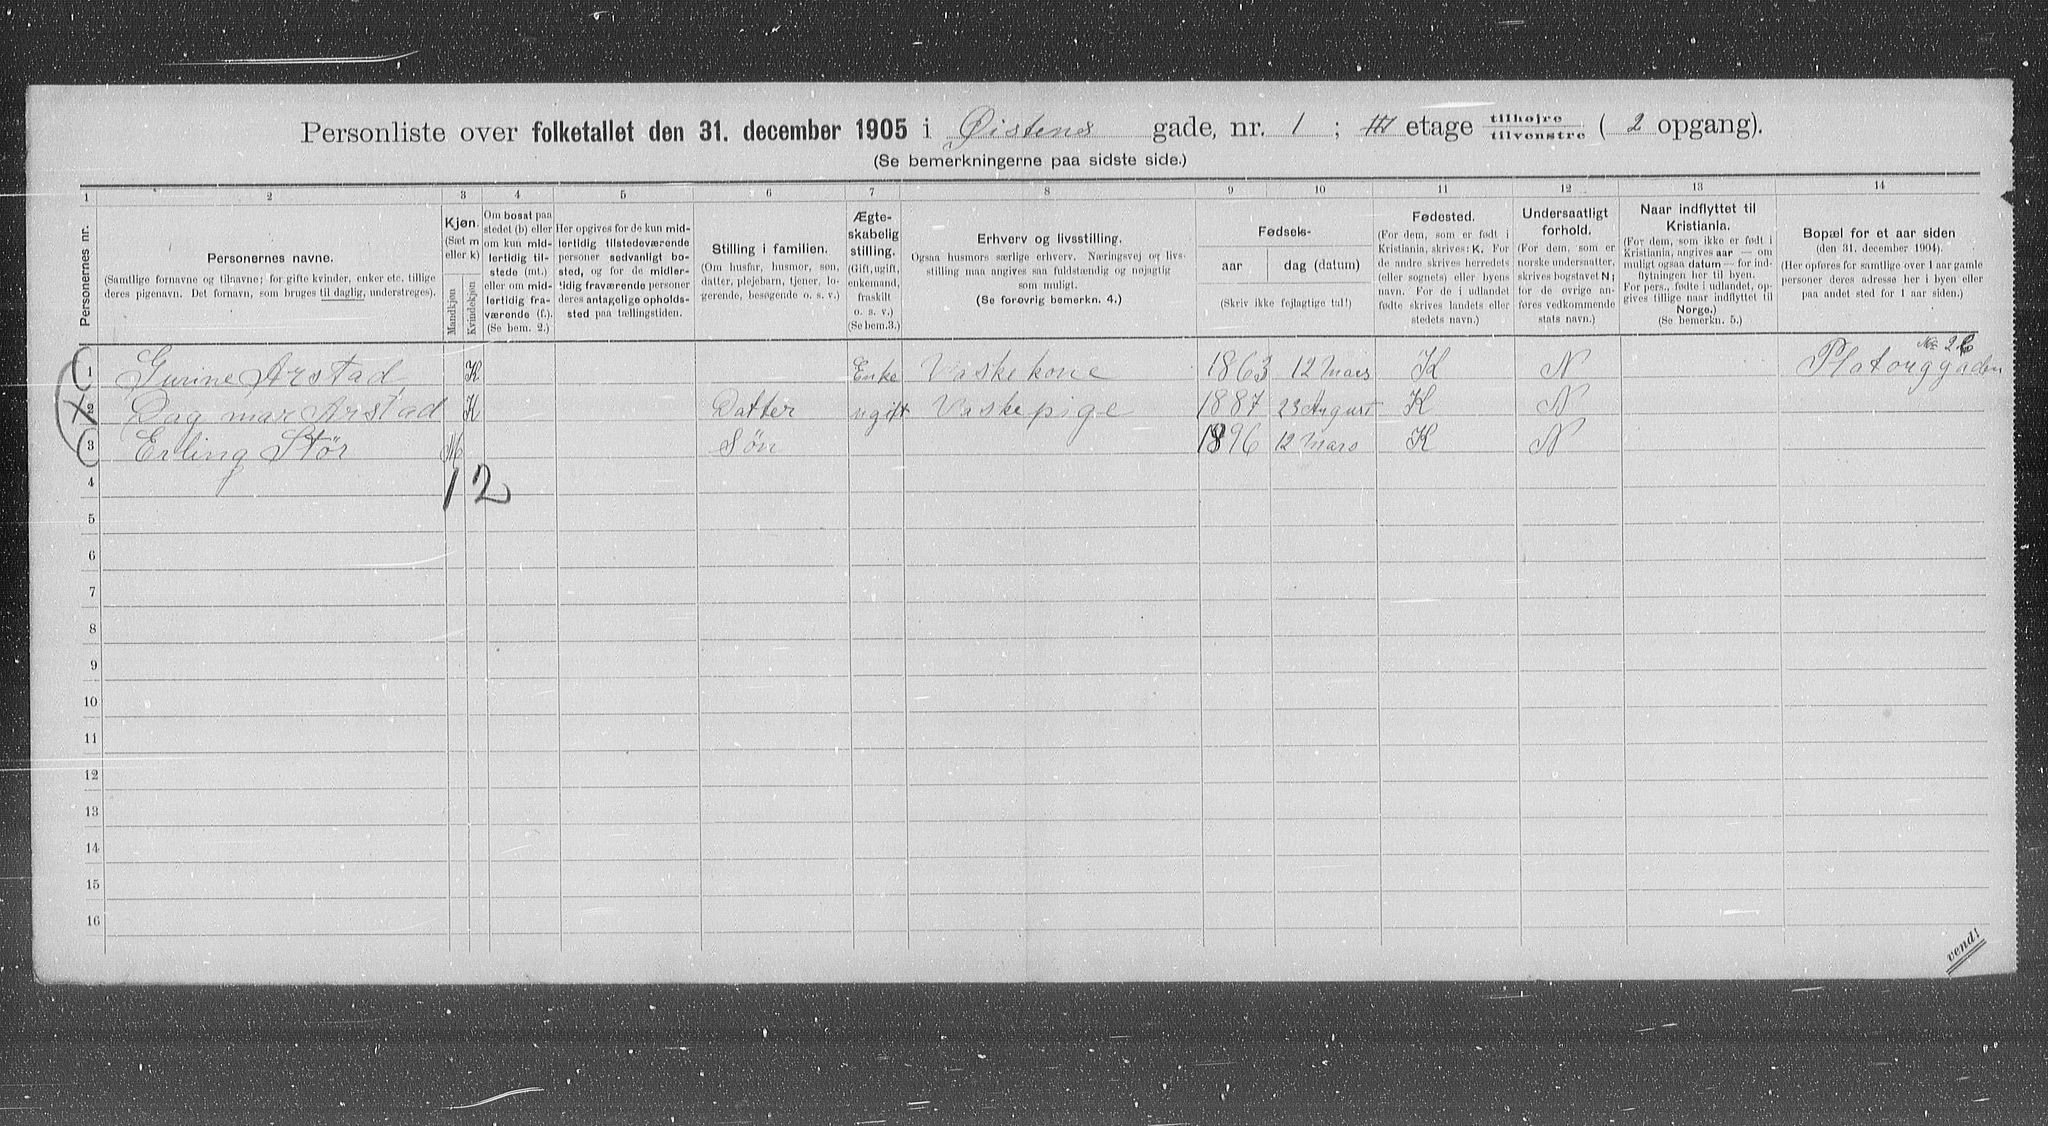 Personliste over folketallet den 31. december 1905 i Øistens gade, nr. 1 ; III etage tilhøjre/tilvenstre ( 2 opgang).
(Se bemerkningerne paa sidste side.)
1 2 3 4 5 6 7 8 9 10 11 12 13 14
Personernes nr.
Personernes navne.
(Samtlige fornavne og tilnavne; for gifte kvinder, enker etc. tillige
deres pigenavn. Det fornavn, som bruges til daglig, understreges).
Kjøn.
(Sæt m
eller k)
Mandkjøn
Kvindekjøn
Om bosat paa
stedet (b) eller
om kun mid-
lertidig til-
stede (mt.)
eller om mid-
lertidig fra-
værende (f.).
(Se bem. 2.)
Her opgives for de kun mid-
lertidig tilstedeværende
personer sedvanlig bo-
sted, og for de midler-
tidig fraværende personer
deres antagelige opholds-
sted paa tællingstiden.
Stilling i familien.
(Om husfar, husmor, søn,
datter, plejebarn, tjener, lo-
gerende, besøgende o. s. v.)
Ægte-
skabelig
stilling.
(Gift, ugift,
enkemand,
fraskilt
o. s. v.)
(Se bem.3.)
Erhverv og livsstilling.
Ogsaa husmors særlige erhverv. Næringsvej og livs-
stilling maa angives saa fuldstændig og nøjagtig
som muligt.
(Se forøvrig bemerkn. 4.)
Fødsels-
aar
dag (datum)
(Skriv ikke fejlagtige tal!)
Fødested.
(For dem, som er født i
Kristiania, skrives: K. For
de andre skrives herredets
(eller sognets) eller byens
navn. For de i udlandet
fødte skrives landets eller
stedets navn.)
Undersaatligt
forhold.
(For dem, som er
norske undersaatter,
skrives bogstavet N;
for de øvrige an-
føres vedkommende
stats navn.)
Naar indflyttet til
Kristiania.
(For dem, som ikke er født i
Kristiania, angives aar — om
muligt ogsaa datum — for ind-
flytningen her til byen.
For pers., fødte i udlandet, op-
gives tillige naar indflyttet til
Norge.)
(Se bemerkn. 5.)
Bopæl for et aar siden
(den 31. december 1904).
(Her opføres for samtlige over 1 aar gamle
personer deres adresse her i byen eller
paa andet sted for 1 aar siden.)
1 Gurine Arstad, K Enke Vaskekone 1863 12 Mars K N Platouggaden
2 Dag mar Arstad K Datter ugift Vaskepige 1887 23 August K N
3 Erling Stör M Søn 1896 12 Mars K N
1 2
4
5
6
7
8
9
10
11
12
13
14
15
16
vend!